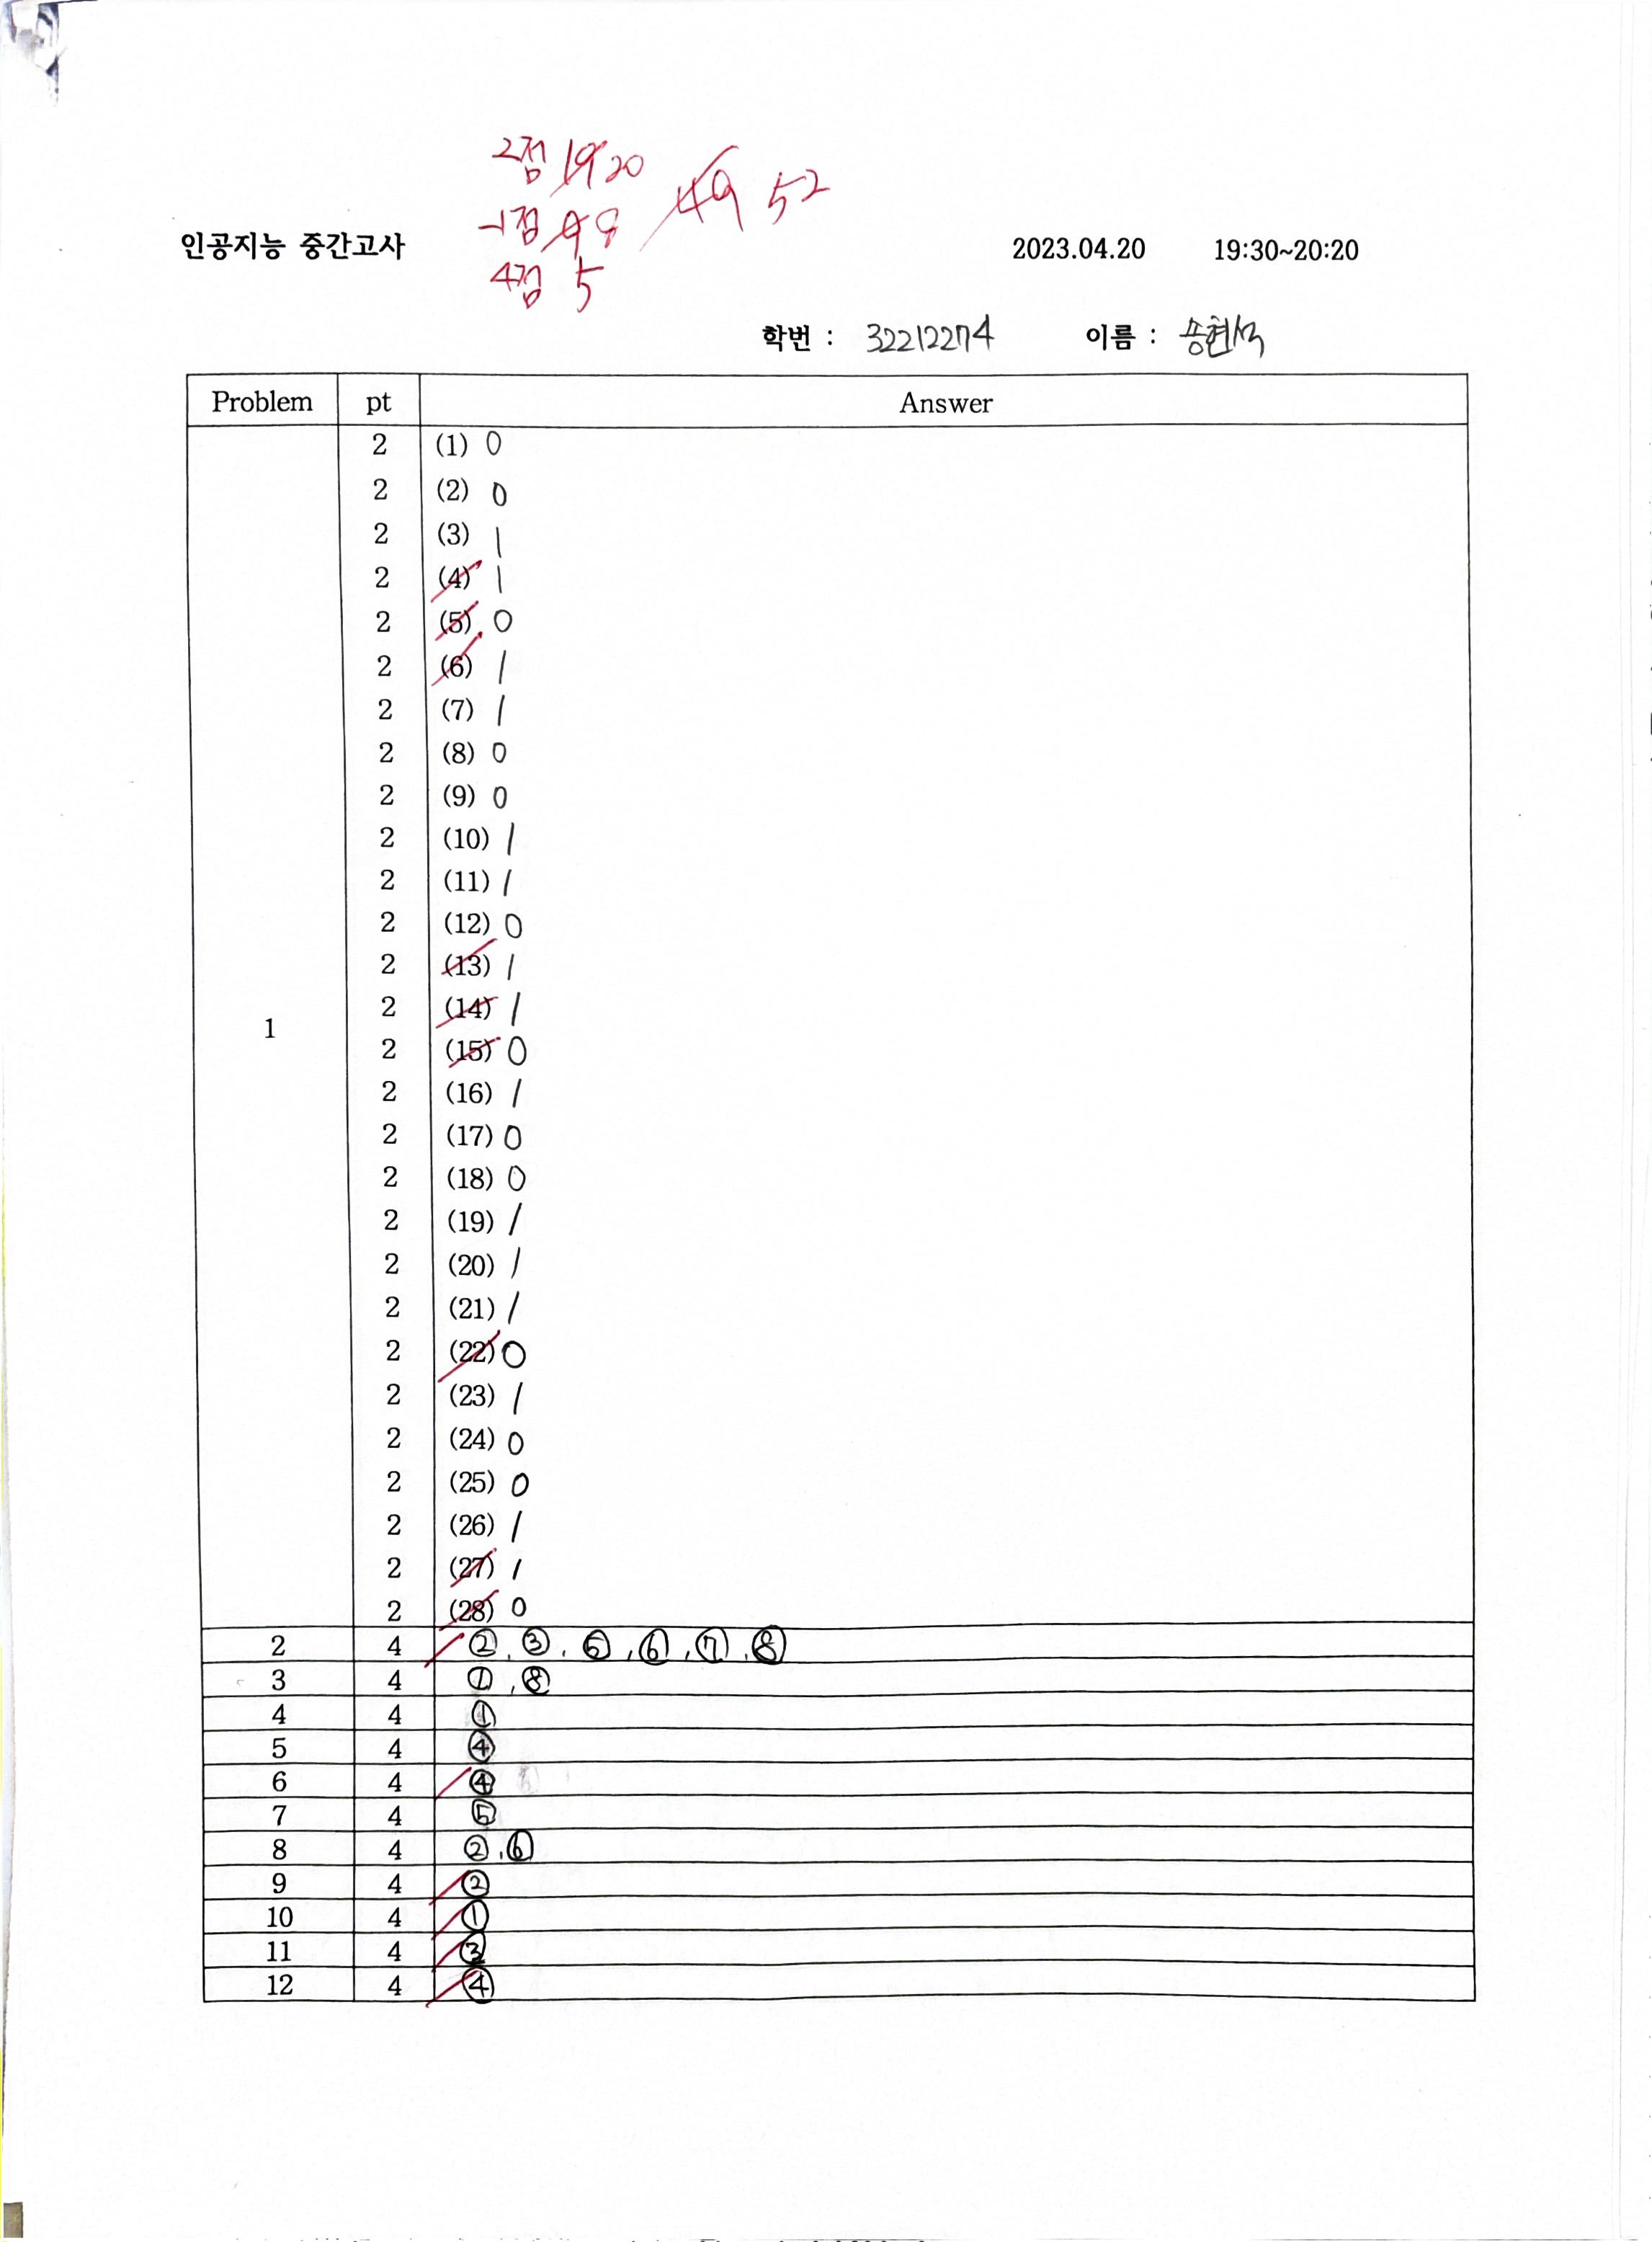 2점 19 20
-1점 9 8
49 52
4점 5
인공지능 중간고사 2023.04.20 19:30~20:20
학번 : 32212274 이름 : 송현석
Problem pt Answer
2 (1) 0
2 (2) 0
2 (3) 1
2 (4) 1
2 (5) 0
2 (6) 1
2 (7) 1
2 (8) 0
2 (9) 0
2 (10) 1
2 (11) 1
2 (12) 0
2 (13) 1
2 (14) 1
1
2 (15) 0
2 (16) 1
2 (17) 0
2 (18) 0
2 (19) 1
2 (20) 1
2 (21) 1
2 (22) 0
2 (23) 1
2 (24) 0
2 (25) 0
2 (26) 1
2 (27) 1
2 (28) 0
2 4 ②, ③, ⑤, ⑥, ⑦, ⑧
3 4 ①, ⑧
4 4 ①
5 4 ④
6 4 ④
7 4 ⑤
8 4 ②, ⑥
9 4 ②
10 4 ①
11 4 ③
12 4 ④